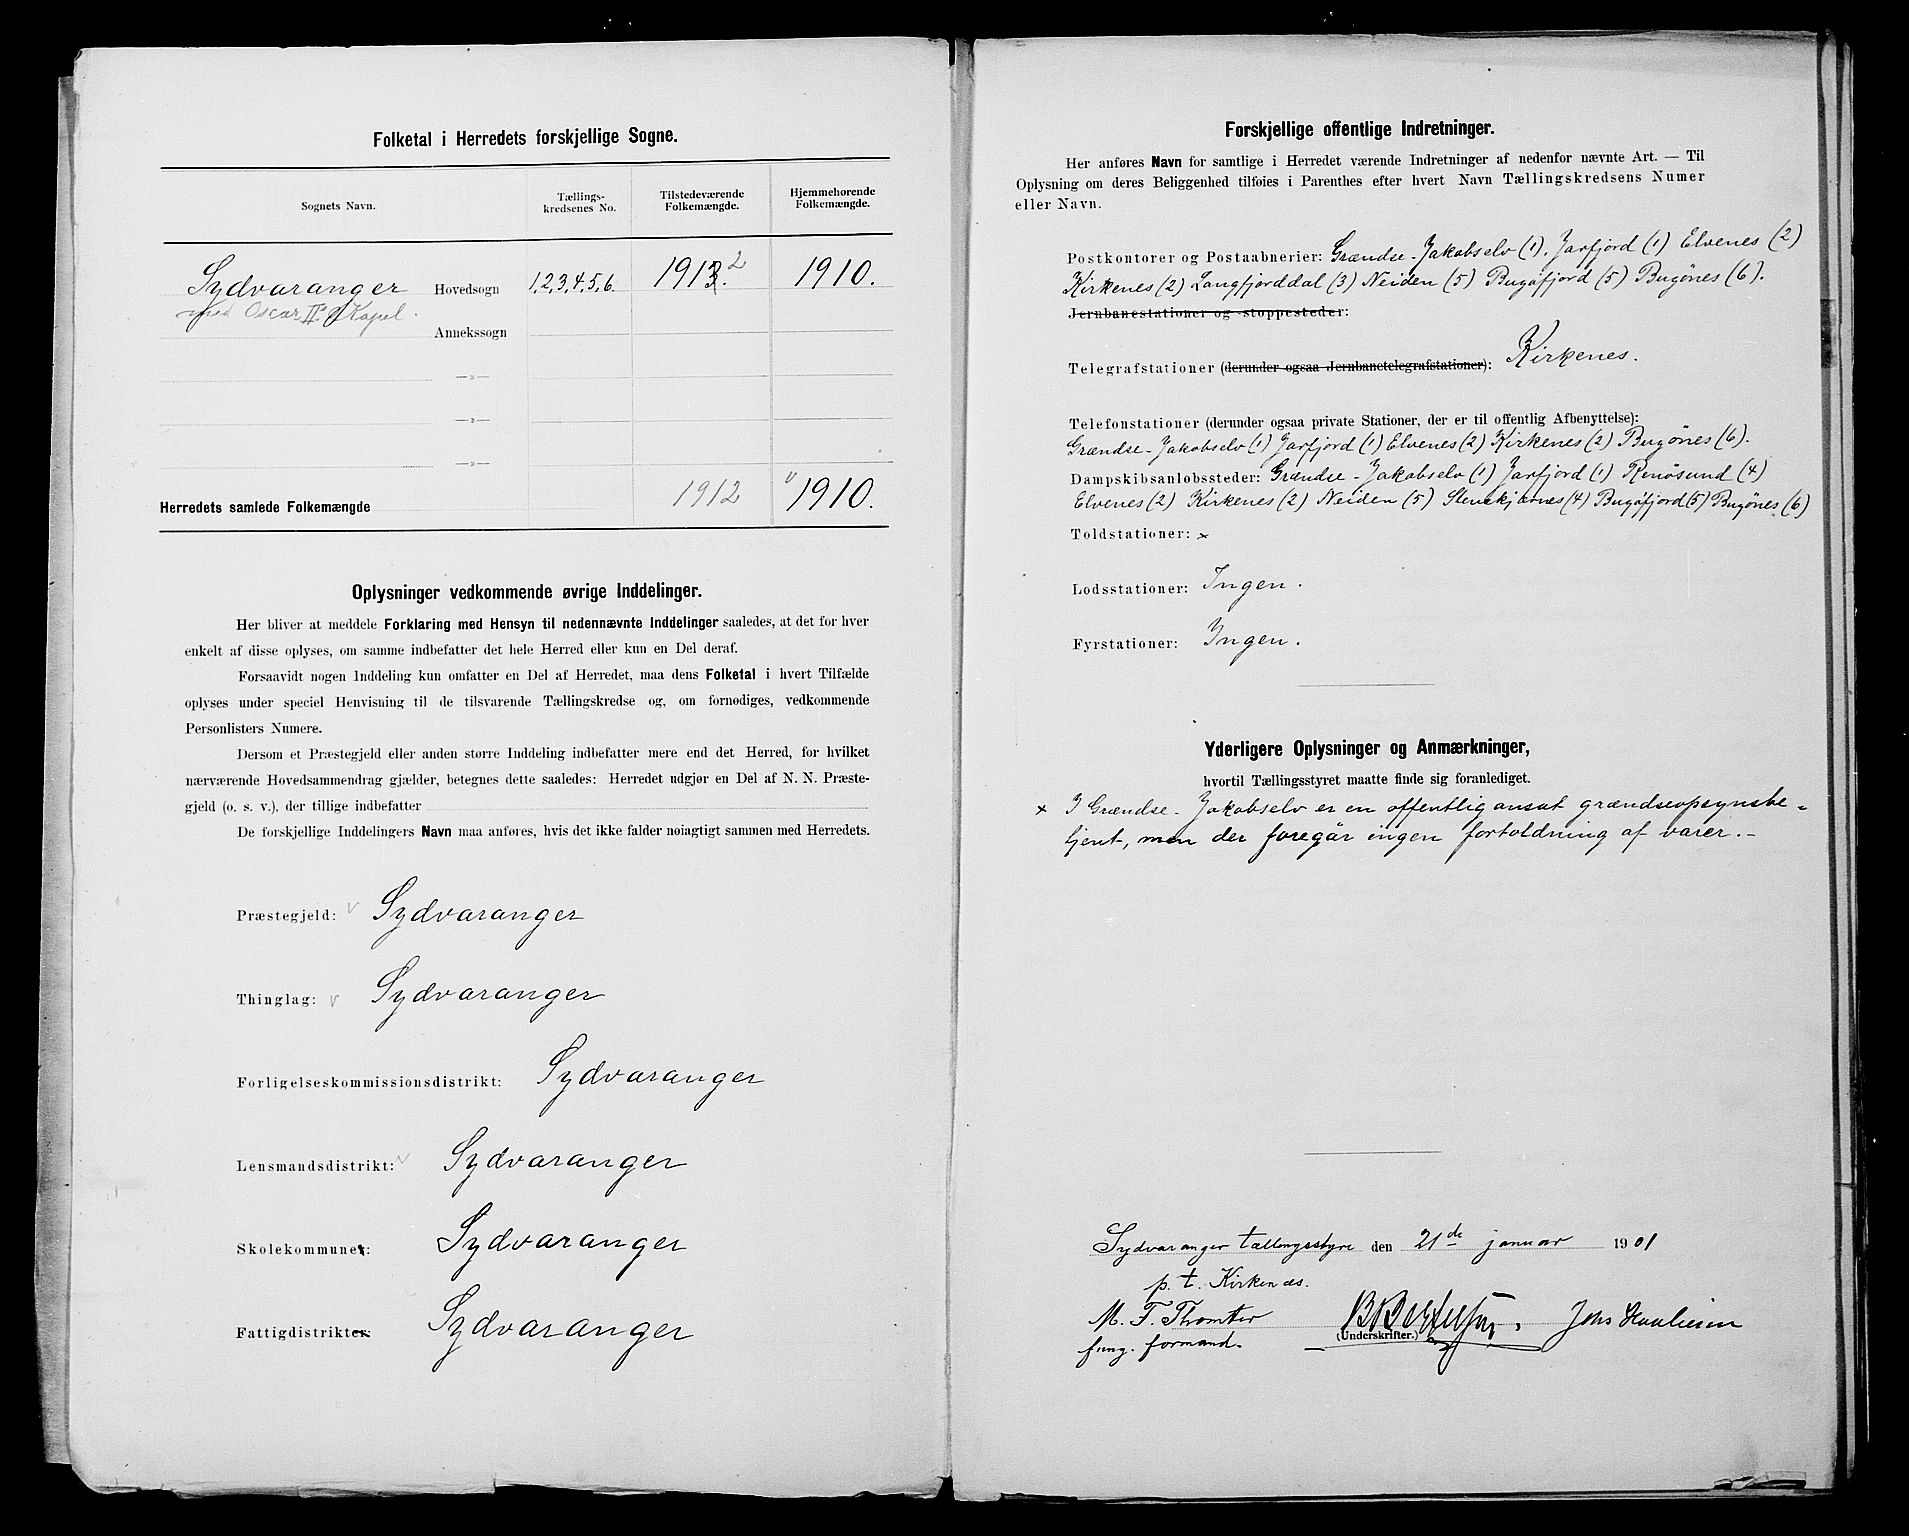 Folketal i Herredets forskjellige Sogne.
Sognets Navn. Tællings-kredsenes No. Tilstedeværende Folkemængde. Hjemmehørende Folkemængde.
Sydvaranger Hovedsogn 1,2,3,4,5,6. 1913. 2 1910.
med Oscar II's Kapel.
Annekssogn
—»—
—»—
—»—
Herredets samlede Folkemængde 1912 1910.
Oplysninger vedkommende øvrige Inddelinger.
Her bliver at meddele Forklaring med Hensyn til nedennævnte Inddelinger saaledes, at det for hver
enkelt af disse oplyses, om samme indbefatter det hele Herred eller kun en Del deraf.
Forsaavidt nogen Inddeling kun omfatter en Del af Herredet, maa dens Folketal i hvert Tilfælde
oplyses under speciel Henvisning til de tilsvarende Tællingskredse og, om fornødiges, vedkommende
Personlisters Numere.
Dersom et Præstegjeld eller anden større Inddeling indbefatter mere end det Herred, for hvilket
nærværende Hovedsammendrag gjælder, betegnes dette saaledes: Herredet udgjør en Del af N. N. Præste-
gjeld (o. s. v.), der tillige indbefatter
De forskjellige Inddelingers Navn maa anføres, hvis det ikke falder nøiagtigt sammen med Herredets.
Præstegjeld: Sydvaranger
Thinglag: Sydvaranger
Forligelseskommissionsdistrikt: Sydvaranger
Lensmandsdistrikt: Sydvaranger
Skolekommuner: Sydvaranger
Fattigdistrikter: Sydvaranger
Forskjellige offentlige Indretninger.
Her anføres Navn for samtlige i Herredet værende Indretninger af nedenfor nævnte Art. — Til
Oplysning om deres Beliggenhed tilføies i Parenthes efter hvert Navn Tællingskredsens Numer
eller Navn.
Postkontorer og Postaabnerier: Grændse-Jakobselv (1). Jarfjord (1) Elvenes (2)
Kirkenes (2) Langfjorddal (3) Neiden (5) Bugøfjord (5) Bugønes (6).
Jernbanestationer og -stoppesteder:
Telegrafstationer (derunder ogsaa Jernbanetelegrafstationer): Kirkenes.
Telefonstationer (derunder ogsaa private Stationer, der er til offentlig Afbenyttelse):
Grændse-Jakobselv (1) Jarfjord (1) Elvenes (2) Kirkenes (2) Bugønes (6).
Dampskibsanløbssteder: Grændse-Jakobselv (1) Jarfjord (1) Renøsund (4)
Elvenes (2) Kirkenes (2) Neiden (5) Stenskjærnes (4) Bugøfjord (5) Bugønes (6)
Toldstationer: x
Lodsstationer: Ingen.
Fyrstationer: Ingen.
Yderligere Oplysninger og Anmærkninger,
hvortil Tællingsstyret maatte finde sig foranlediget.
x I Grændse-Jakobselv er en offentlig ansat grændseopsynsbe-
tjent, men der foregår ingen fortoldning af varer.-
Sydvaranger tællingsstyre den 21de januar 1901
p. t. Kirkenæs.
M. F. Thomter
(Underskrifter.)
fung. formand.